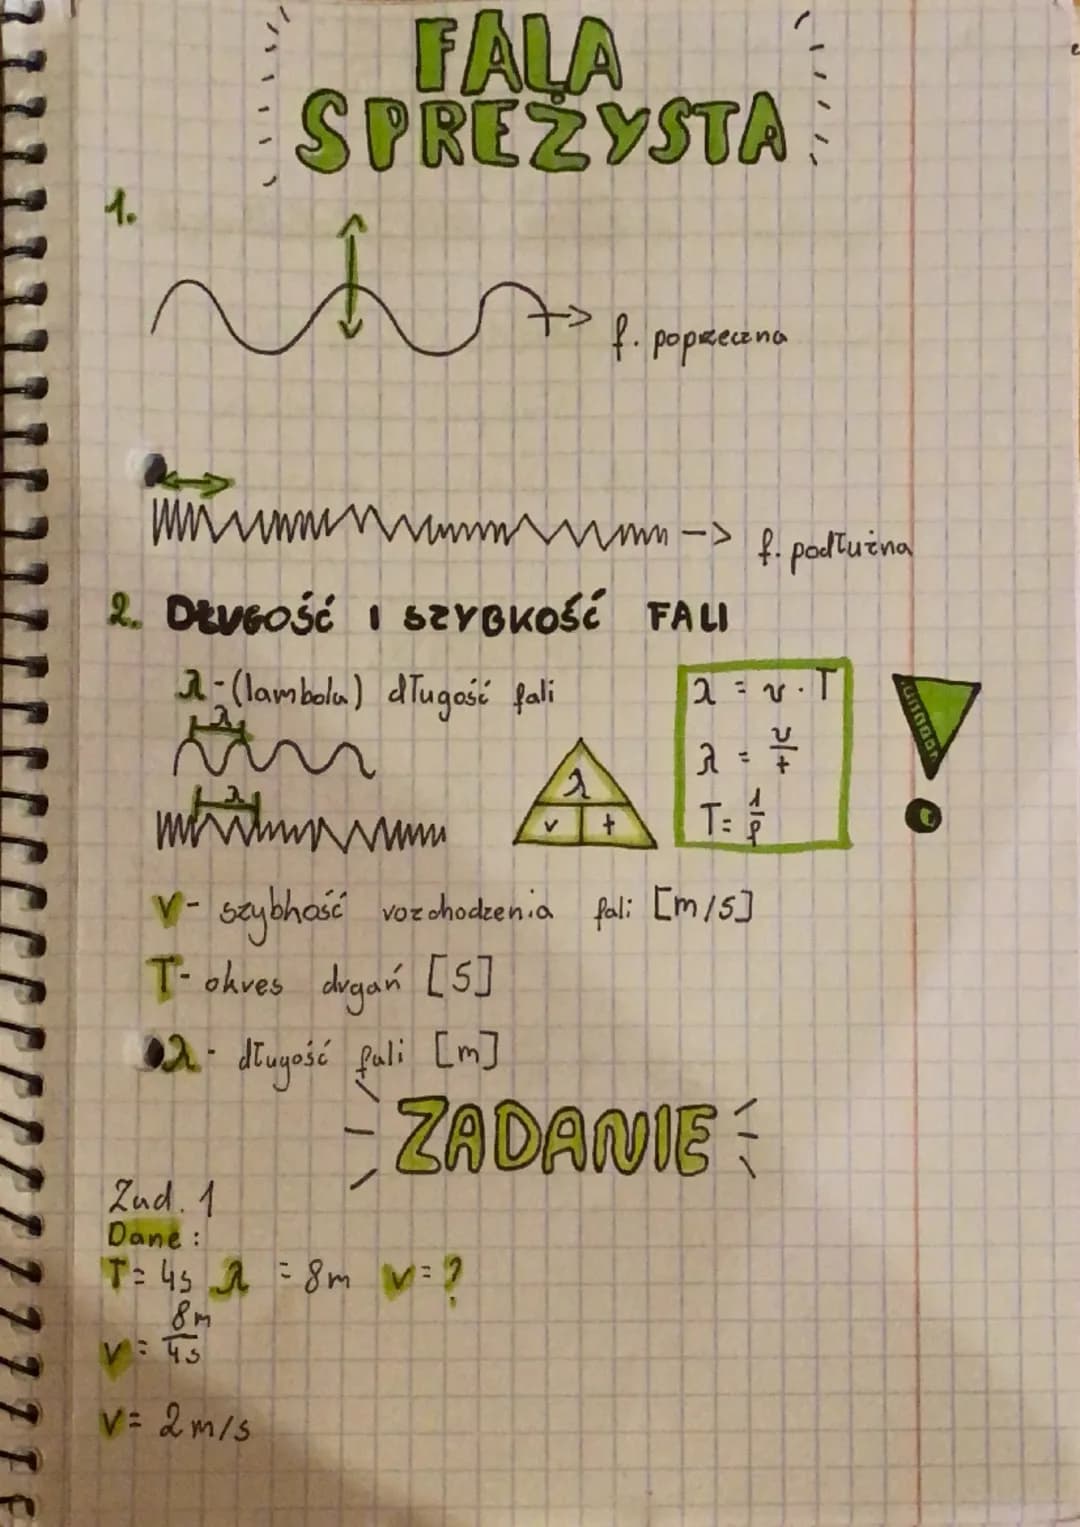 FALA
SPRĘŻYSTA
1.
f. poprzeczna
f. podłużna
2. DŁUGOŚĆ I SZYBKOŚĆ FALI
λ - (lambda) długość fali
λ
λ
λ
v t
λ = v · T
λ = v/t
T = 1/f
V - szybkość rozchodzenia fali [m/s]
T - okres drgań [s]
λ - długość fali [m]
ZADANIE
Zad. 1
Dane:
T = 4s λ = 8m v = ?
v = 8m/4s
v = 2 m/s